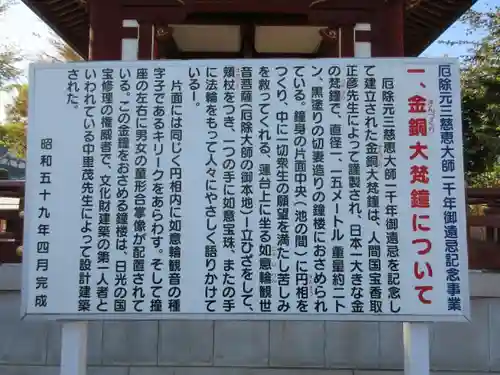 厄除元三慈恵大師一千年御遠忌記念事業
一、金銅大梵鐘について
こんどうだいぼんしょう
厄除元三慈恵大師一千年御遠忌を記念し
て建立された金銅大梵鐘は、人間国宝香取
正彦先生によって謹製され、日本一大きな金
の梵鐘で、直径一、一五メートル 重量約二ト
ン、黒塗りの切妻造りの鐘楼におさめられ
ている。鐘身の片面中央(池の間)に円相を
つくり、中に一切衆生の願望を満たし苦しみ
を救ってくれる、蓮台上に坐る如意輪観世
音菩薩(厄除大師の御本地)ー立ひざをして、
頬杖をつき、一つの手に如意宝珠、またの手
に法輪をもって人々にやさしく語りかけて
いるー。
片面には同じく円相内に如意輪観音の種
字子であるキリークをあらわす。そして撞
座の左右に男女の童形合掌像が配置されて
いる。この金鐘をおさめる鐘楼は、日光の国
宝修理の権威者で、文化財建築の第一人者と
いわれている中里茂先生によって設計建築
された。
昭和五十九年四月 完成